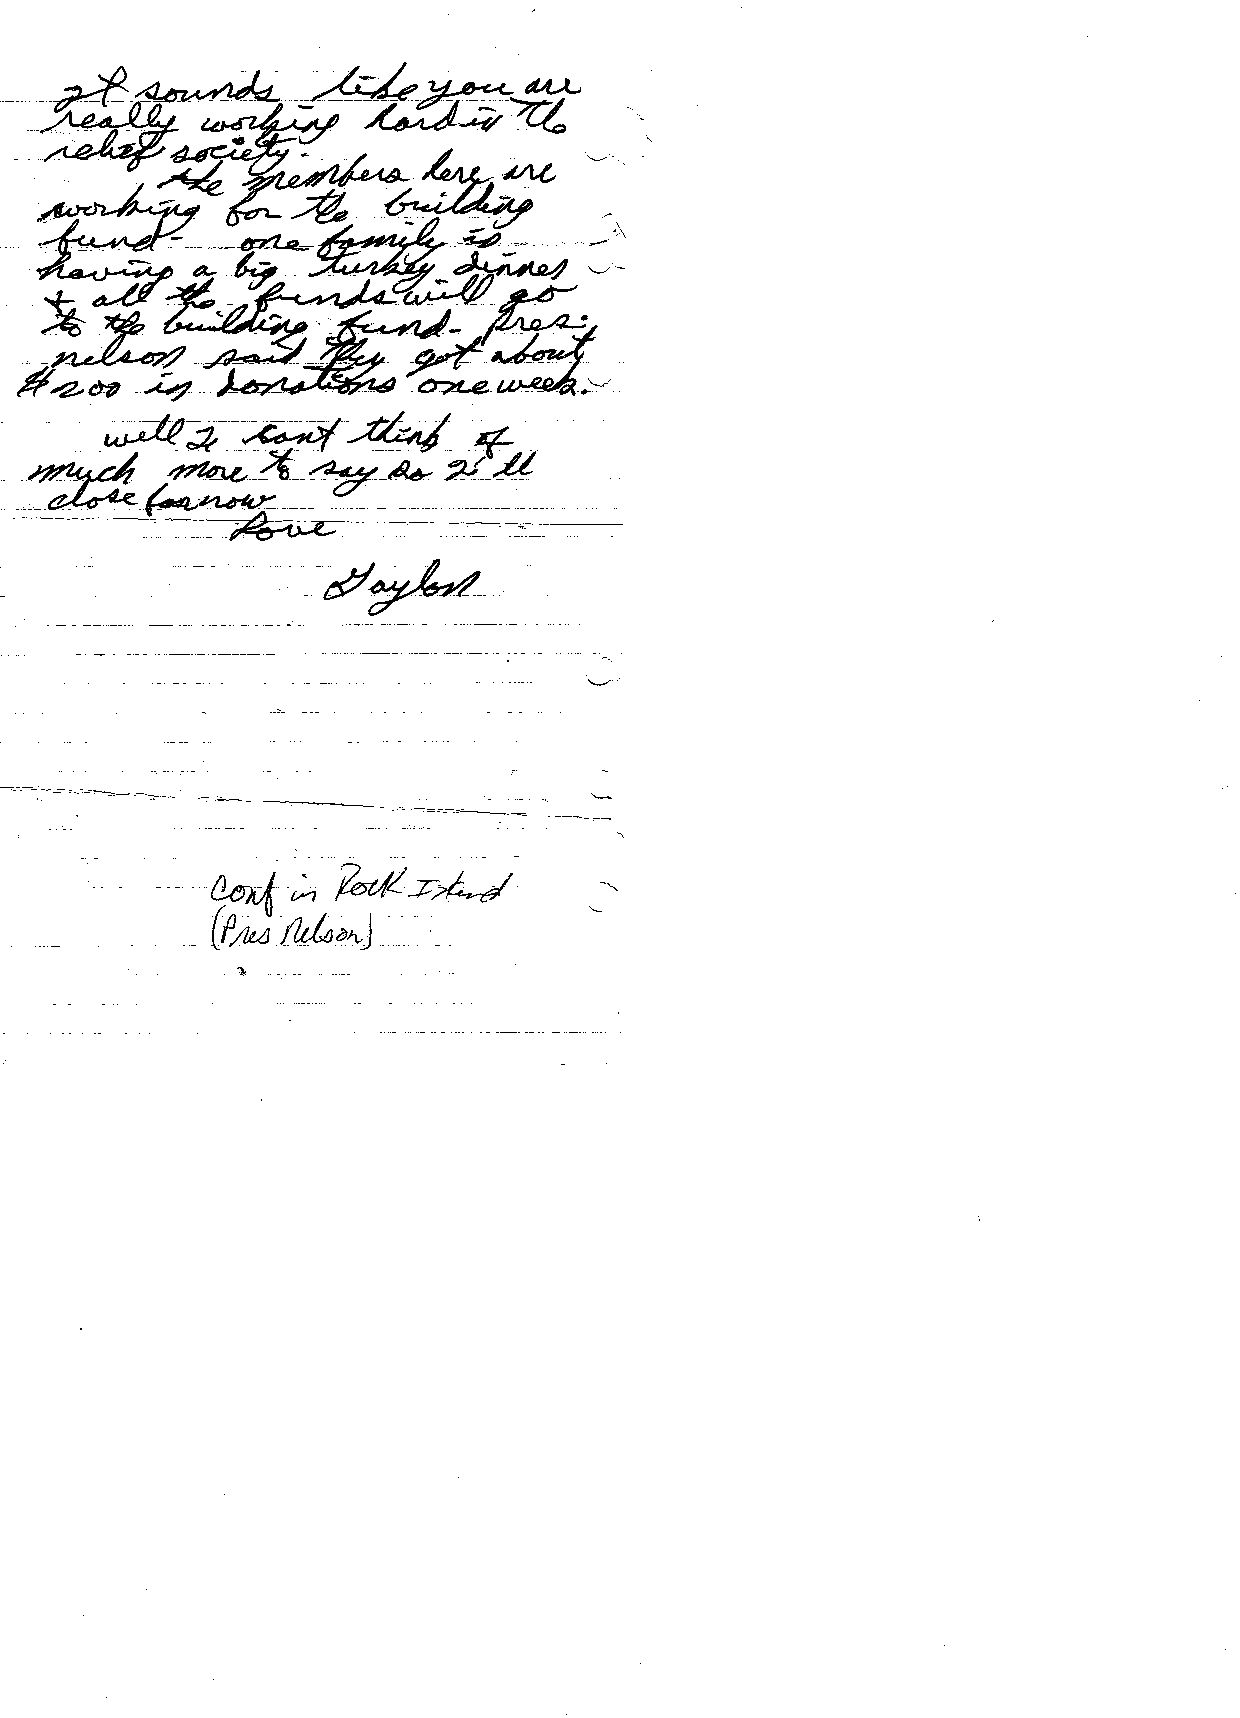 It sounds like you are
really working hard in the
relief society.
the members here are
working for the building
fund - one family is
having a big turkey dinner
+ all the funds will go
to the building fund - Pres.
nelson said they got about
$200 in donations one week.
well I cant think of
much more to say so I'll
close for now
Love
Taylor
Conf in Rock Island
(Pres Nelson)